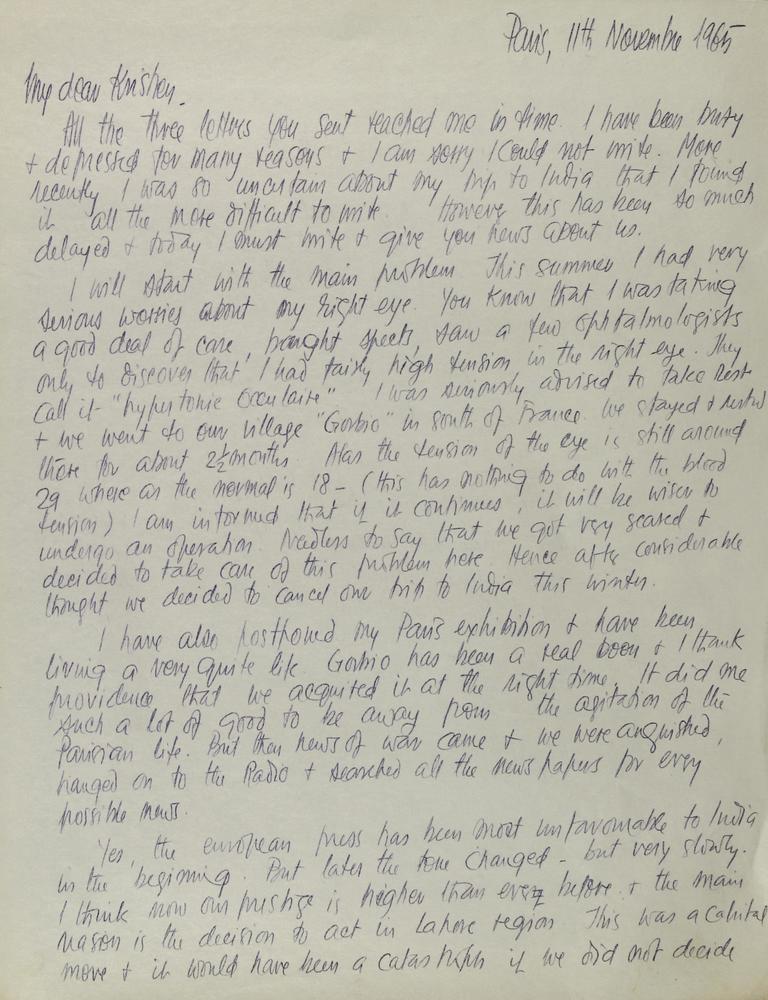 Paris, 11th Novembre 1965
My dear Krishen,
All the three letters you sent reached me in time. I have been busy
+ depressed for many reasons + I am sorry I could not write. More
recently I was so uncertain about my trip to India that I found
it all the more difficult to write. However this has been so much
delayed + today I must write + give you news about us.
I will start with the main problem This summer I had very
serious worries about my right eye. You know that I was taking
a good deal of care, bought spects, saw a few ophtalmologists
only to discover that I had fairly high tension in the right eye. They
call it "hypertonie occulaire" I was seriously advised to take rest
+ we went to our village "Gorbio" in south of France. We stayed + rested
there for about 2½ months. Alas the tension of the eye is still around
29 where as the normal is 18 - (this has nothing to do with the blood
tension) I am informed that if it continues, it will be wiser to
undergo an operation. Needless to say that we got very scared +
decided to take care of this problem here. Hence after considerable
thought we decided to cancel our trip to India this winter.
I have also postponed my Paris exhibition + have been
living a very quite life. Gorbio has been a real boon + I thank
providence that we acquited it at the right time. It did me
such a lot of good to be away from the agitation of the
Parisian life. But then news of war came + we were anguished,
hanged on to the Radio + searched all the news papers for every
possible news.
Yes, the european press has been most unfavourable to India
in the beginning. But later the tone changed - but very slowly.
I think now our prestige is higher than ever before + the main
reason is the decision to act in Lahore region This was a capital
move + it would have been a catastrophe if we did not decide